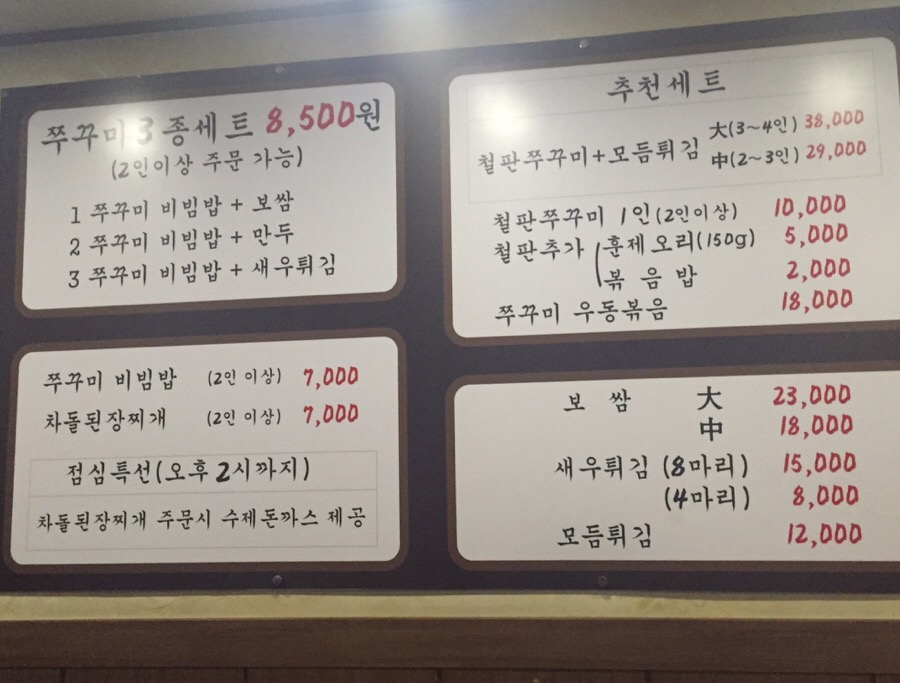 쭈꾸미 3종세트 8,500원
(2인이상 주문 가능)
1 쭈꾸미 비빔밥 + 보쌈
2 쭈꾸미 비빔밥 + 만두
3 쭈꾸미 비빔밥 + 새우튀김
쭈꾸미 비빔밥 (2인 이상) 7,000
차돌된장찌개 (2인 이상) 7,000
점심특선(오후 2시까지)
차돌된장찌개 주문시 수제돈까스 제공
추천세트
철판쭈꾸미+모듬튀김 大(3~4인) 38,000
中(2~3인) 29,000
철판쭈꾸미 1인(2인이상) 10,000
철판추가 훈제오리(150g) 5,000
볶음밥 2,000
쭈꾸미 우동볶음 18,000
보쌈 大 23,000
中 18,000
새우튀김 (8마리) 15,000
(4마리) 8,000
모듬튀김 12,000